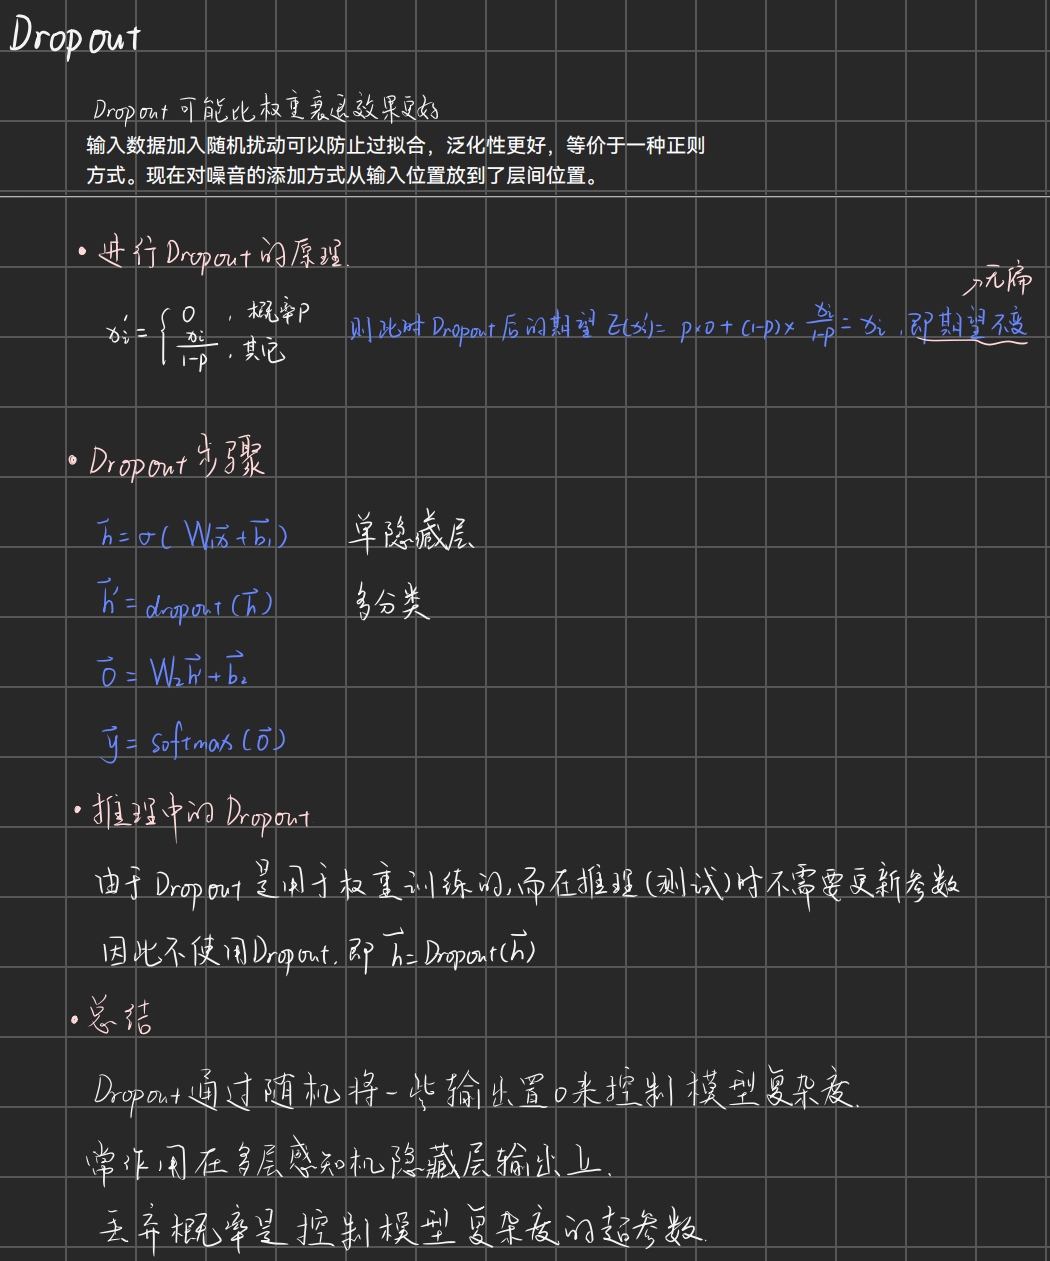 Dropout
Dropout可能比权重衰退效果更好
输入数据加入随机扰动可以防止过拟合，泛化性更好，等价于一种正则
方式。现在对噪音的添加方式从输入位置放到了层间位置。
• 进行Dropout的原理.
xi' = { 0 , 概率P
xi/(1-p) , 其它
则此时Dropout后的期望 E(xi') = p×0 + (1-p)× xi/(1-p) = xi , 即期望不变
↗无偏
• Dropout步骤
h⃗ = σ( W₁x⃗ + b⃗₁) 单隐藏层
h⃗' = dropout(h⃗) 多分类
o⃗ = W₂h⃗' + b⃗₂
y⃗ = softmax(o⃗)
• 推理中的Dropout
由于Dropout是用于权重训练的,而在推理(测试)时不需要更新参数
因此不使用Dropout, 即 h⃗ = Dropout(h⃗)
• 总结
Dropout通过随机将一些输出置0来控制模型复杂度.
常作用在多层感知机隐藏层输出上.
丢弃概率是控制模型复杂度的超参数.